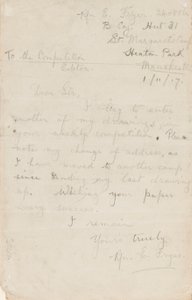 B Coy. Hut 31
St Margaret's Camp
Heaton Park
Manchester
1/11/17.
To the Competition
Editor.
Dear Sir,
I beg to enter
another of my drawings in
your weekly competition. Please
note my change of address, as
I have moved to another camp
since sending my last drawing
up. Wishing your paper
every success.
I remain
Yours truly